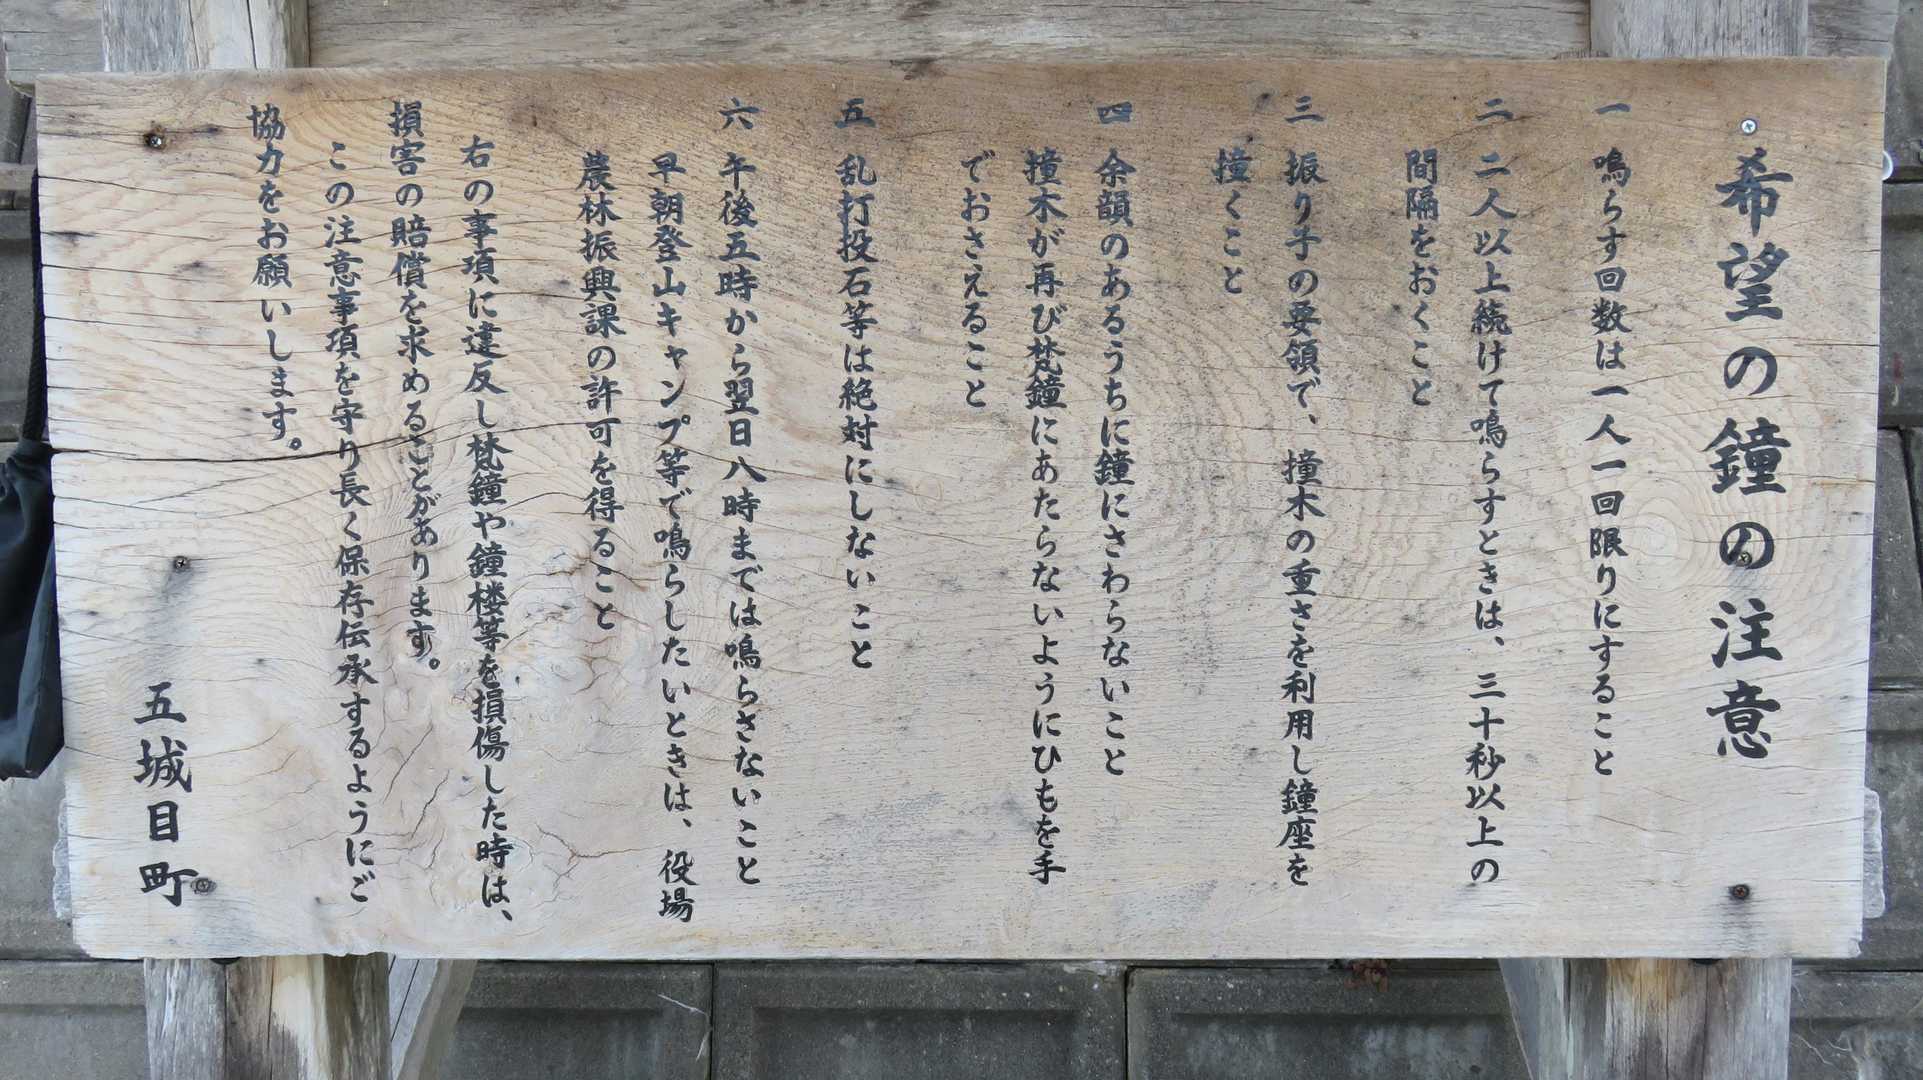 希望の鐘の注意
一 鳴らす回数は一人一回限りにすること
二 二人以上続けて鳴らすときは、三十秒以上の
間隔をおくこと
三 振り子の要領で、撞木の重さを利用し鐘座を
撞くこと
四 余韻のあるうちに鐘にさわらないこと
撞木が再び梵鐘にあたらないようにひもを手
でおさえること
五 乱打投石等は絶対にしないこと
六 午後五時から翌日八時までは鳴らさないこと
早朝登山キャンプ等で鳴らしたいときは、役場
農林振興課の許可を得ること
右の事項に違反し梵鐘や鐘楼等を損傷した時は、
損害の賠償を求めることがあります。
この注意事項を守り長く保存伝承するようにご
協力をお願いします。
五城目町